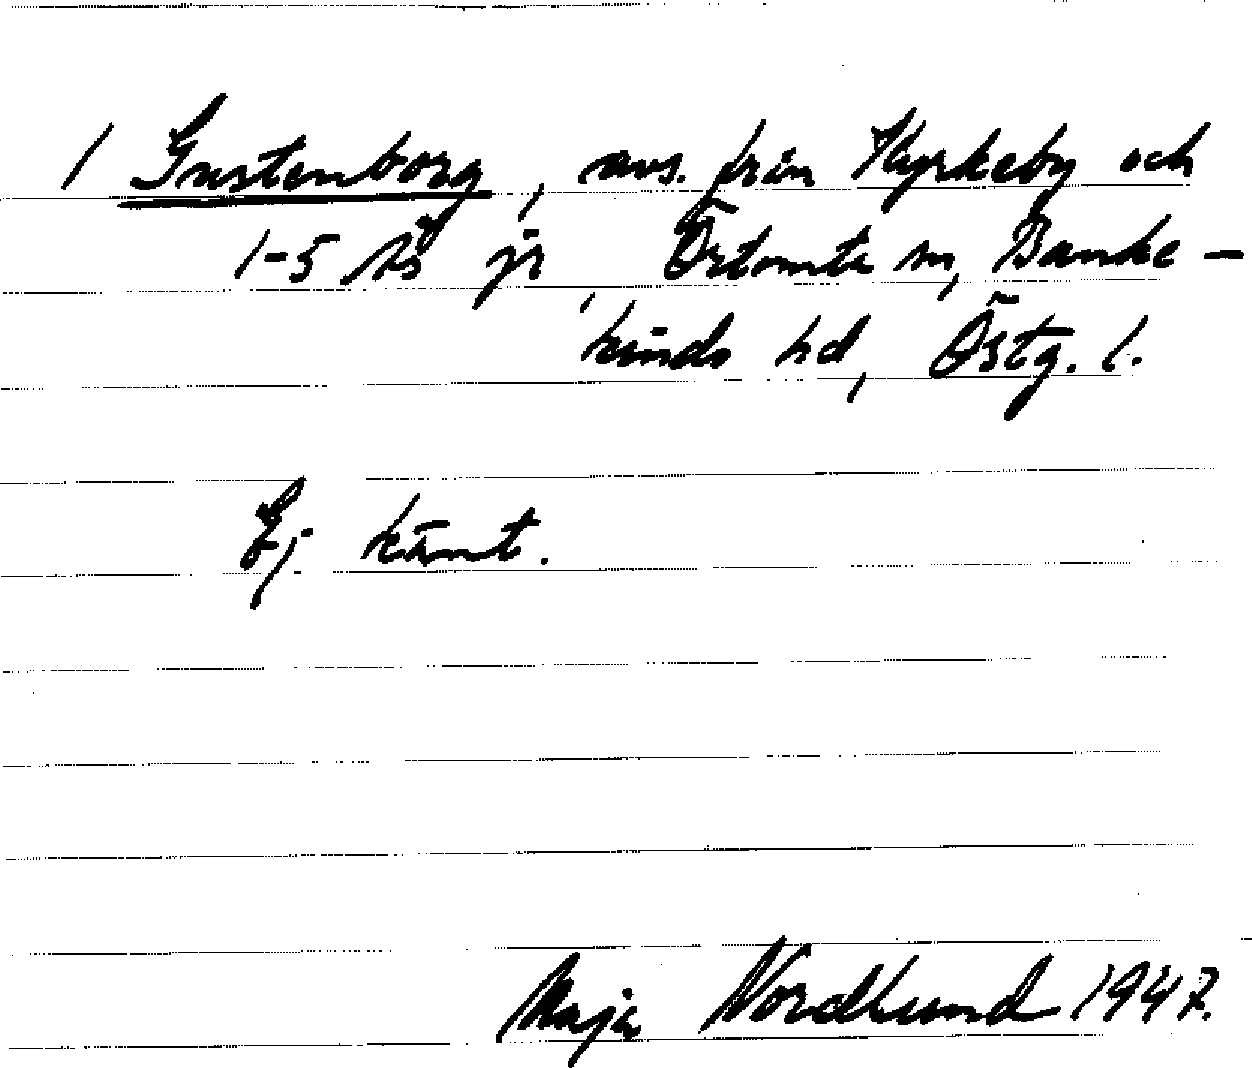 1 Gustenborg, avs. från Kyrkeby och
1-5 Ås jr, Örtomta sn, Banke-
kinds hd, Östg. l.
Ej känt.
Maja Nordlund 1947.